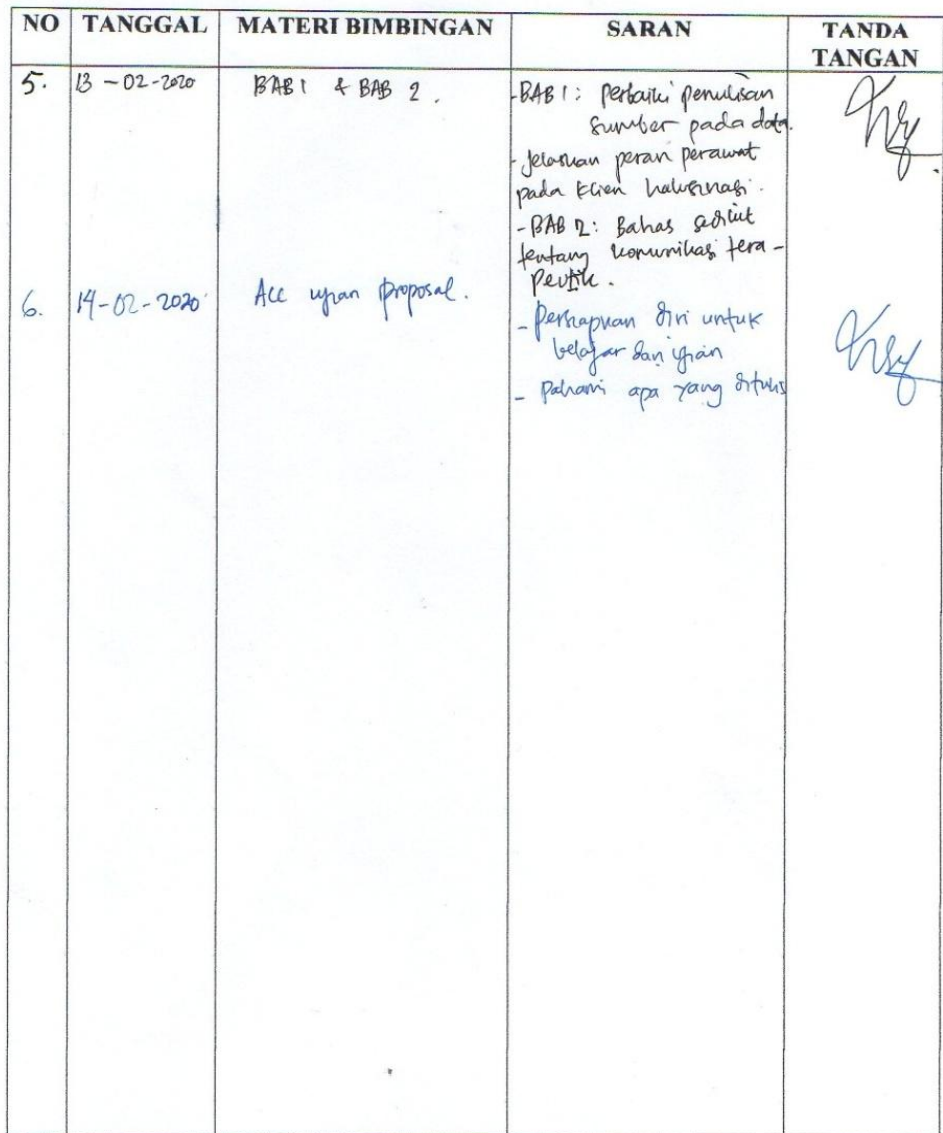 NO TANGGAL MATERI BIMBINGAN SARAN TANDA TANGAN
5. 13-02-2020 BAB 1 & BAB 2. -BAB 1: perbaiki penulisan
sumber pada data.
- Jelaskan peran perawat
pada klien halusinasi.
- BAB 2: Bahas sedikit
tentang komunikasi tera-
peutik.
6. 14-02-2020 Acc ujian proposal. - Persiapkan diri untuk
belajar dan ujian
- Pahami apa yang ditulis